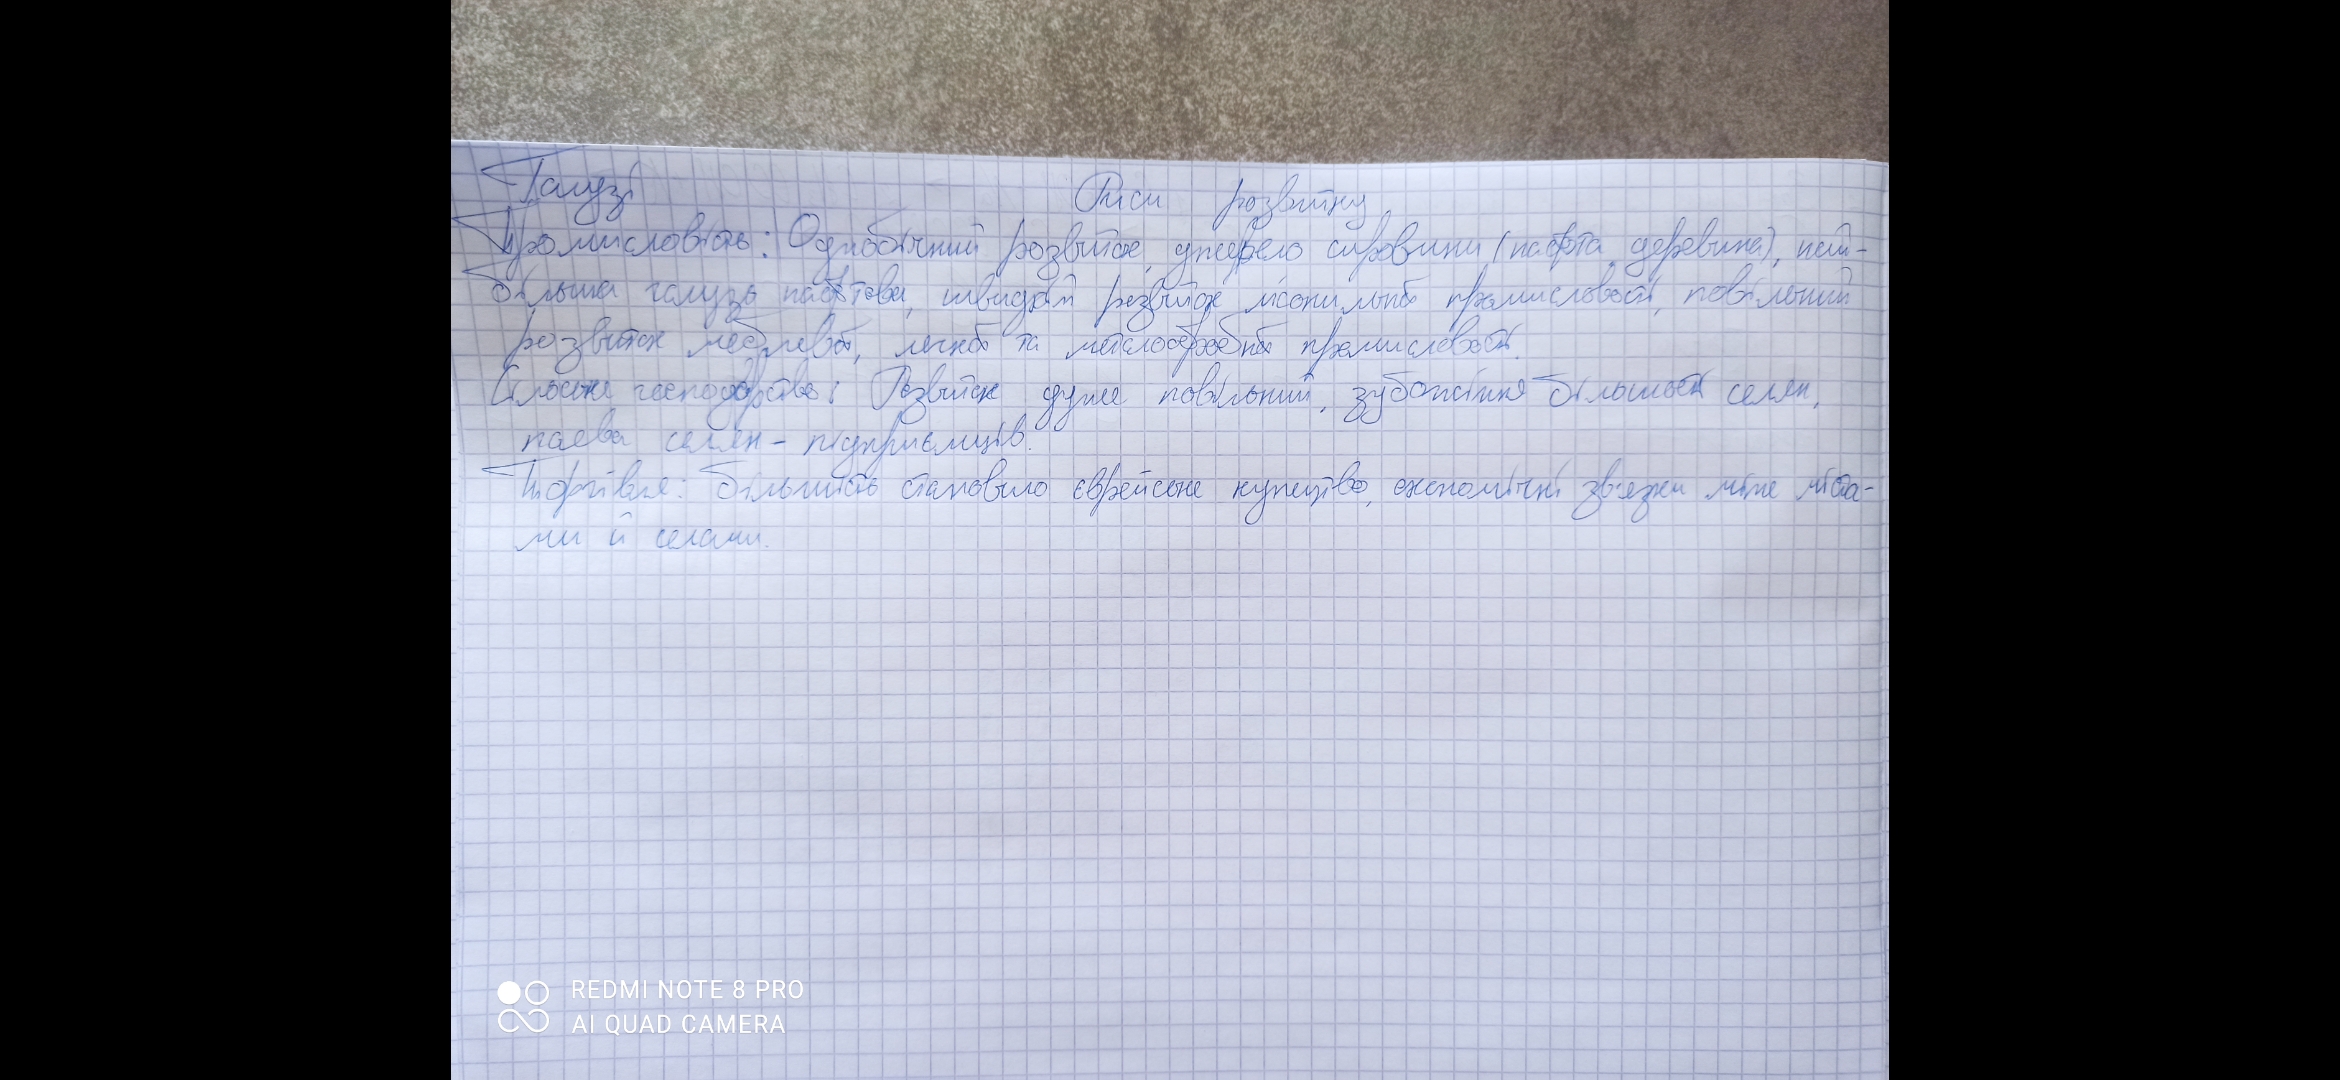 Галузі Риси розвитку
Промисловість: Однобічний розвиток, джерело сировини (нафта, деревина), най-
більша галузь нафтова, швидкий розвиток лісопильної промисловості, повільний
розвиток меблевої, легкої та металообробної промисловості.
Сільське господарство: Розвиток дуже повільний, зубожіння більшості селян,
поява селян-підприємців.
Торгівля: більшість становило єврейське купецтво, економічні зв'язки між міста-
ми й селами.
REDMI NOTE 8 PRO
AI QUAD CAMERA